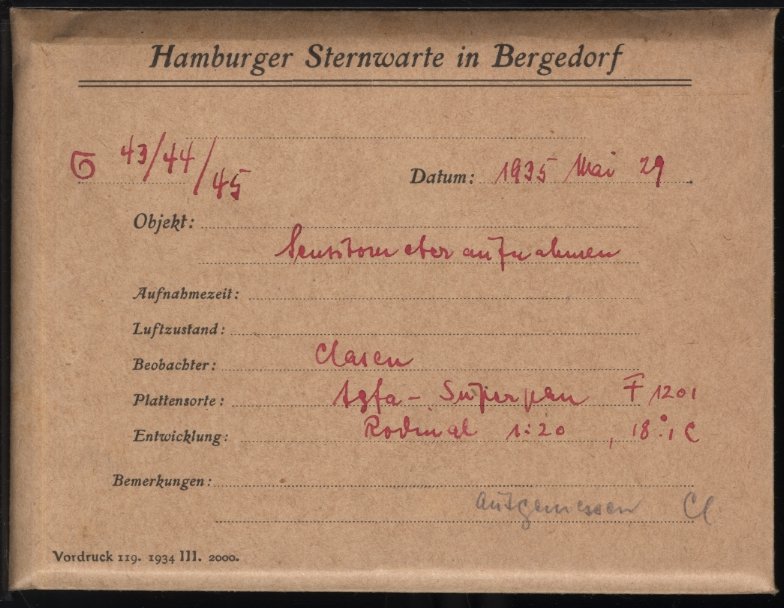 Hamburger Sternwarte in Bergedorf
G 43/44/45
Datum: 1935 Mai 29
Objekt:
Sensitometeraufnahmen
Aufnahmezeit:
Luftzustand:
Beobachter: Clasen
Plattensorte: Agfa - Superpan F 1201
Entwicklung: Rodinal 1:20, 18°.1 C
Bemerkungen:
ausgemessen Cl
Vordruck 119. 1934 III. 2000.